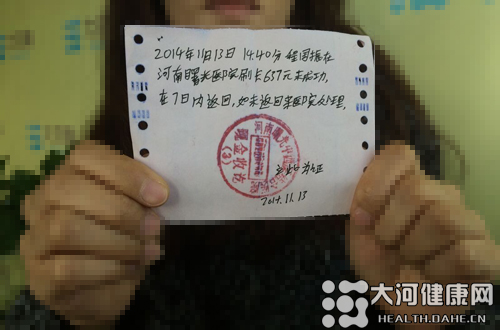 2014年11月13日 14.40分 程国振在
河南曙光医院刷卡657元未成功.
在7日内返回,如未返回来医院处理.
以此为证
2014.11.13
现金收讫
(3)
大河健康网
HEALTH.DAHE.CN